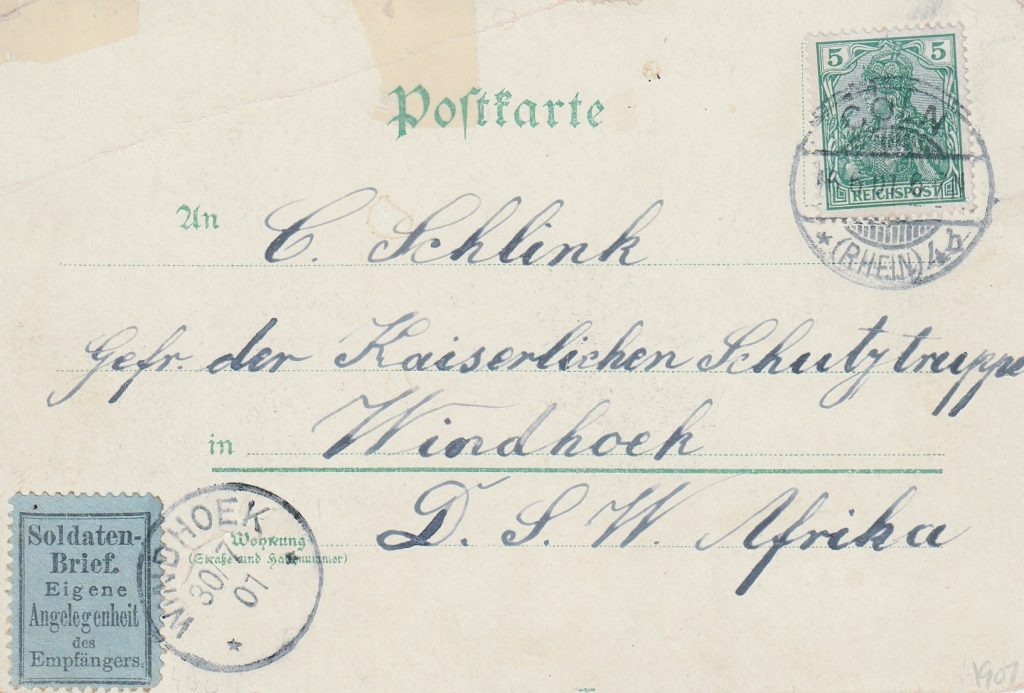 Postkarte
5 5
REICHSPOST
CÖLN
(RHEIN) 4b
An C. Schlink
Gefr. der Kaiserlichen Schutztruppe
in Windhoek
D. S. W. Afrika
Wohnung
(Straße und Hausnummer)
WINDHOEK
30/7
01
Soldaten-
Brief.
Eigene
Angelegenheit
des
Empfängers.